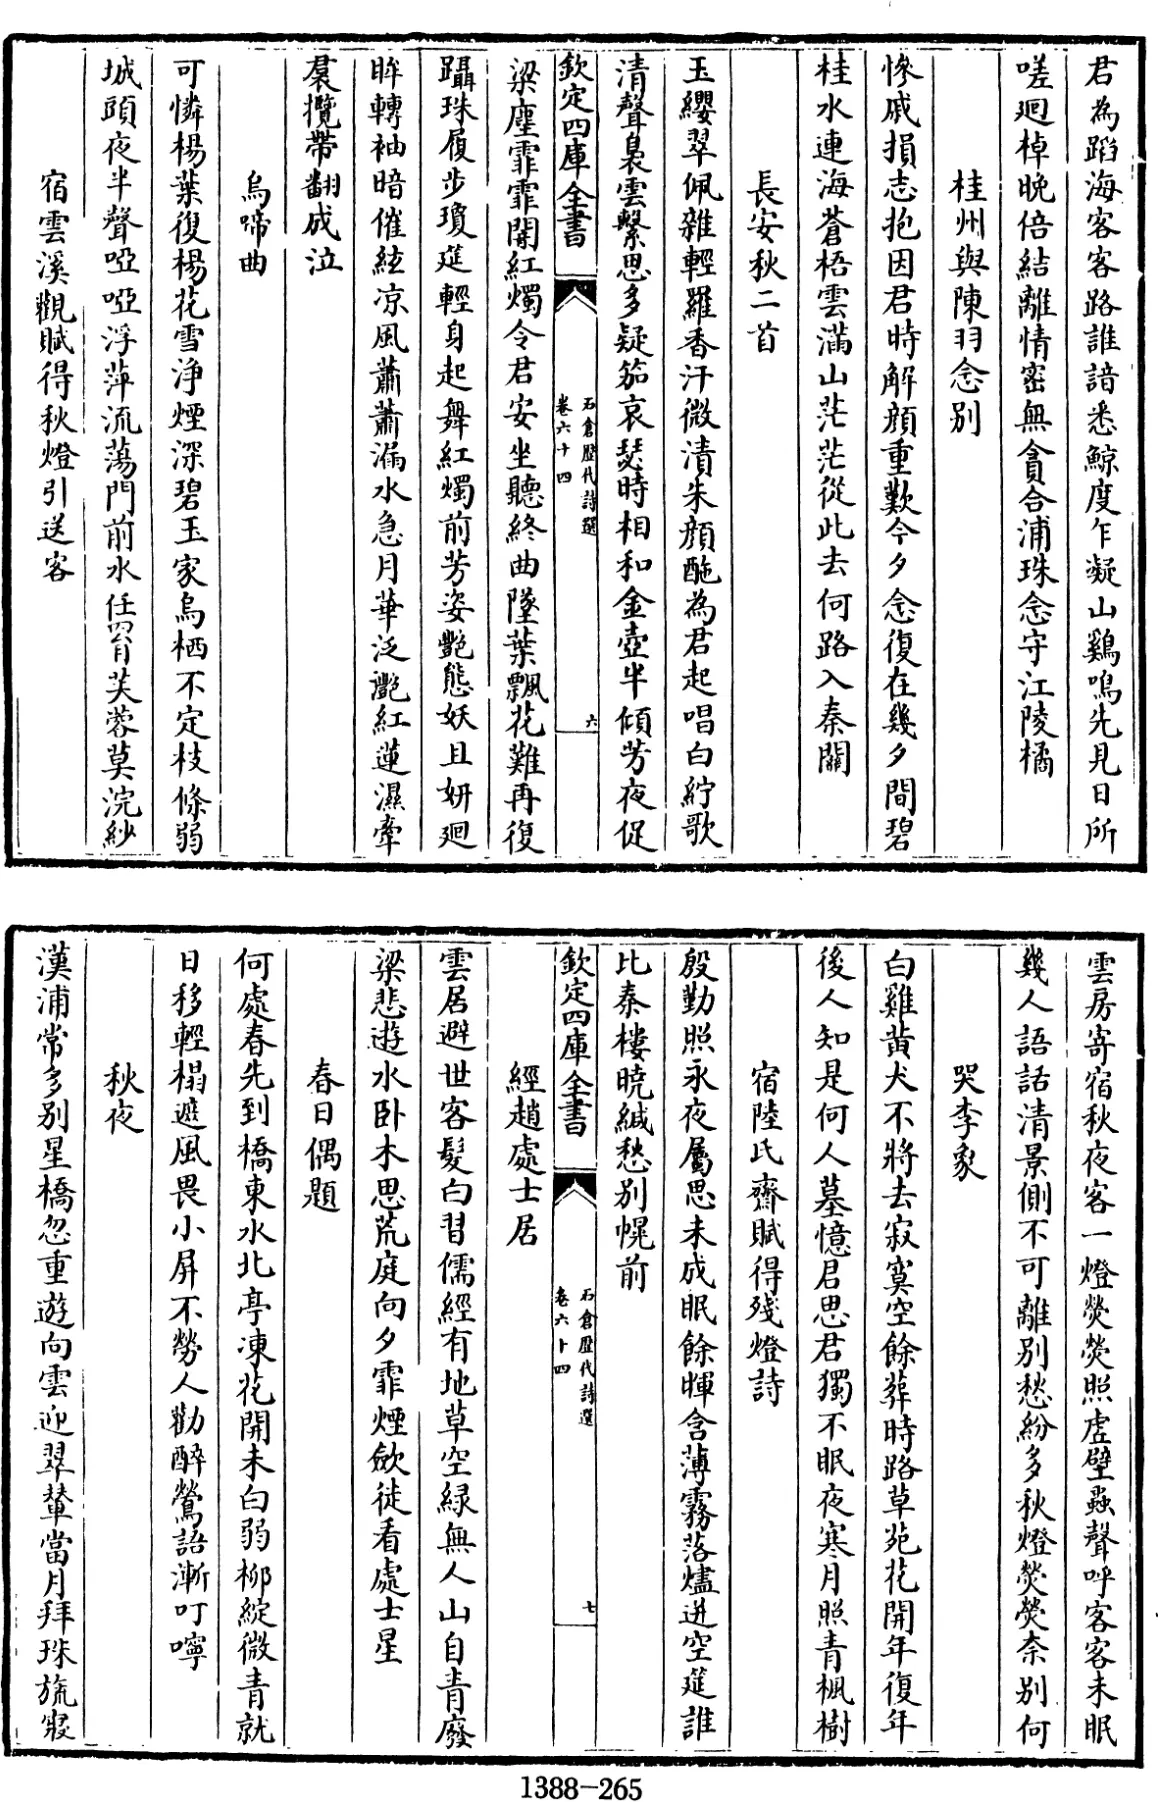 君為蹈海客客路誰諳悉鯨度乍凝山鷄鳴先見日所
嗟廻棹晚倍結離情密無貪合浦珠念守江陵橘
桂州與陳羽念別
慘戚損志抱因君時解顔重歎今夕念復在幾夕間碧
桂水連海蒼梧雲滿山茫茫從此去何路入秦關
長安秋二首
玉纓翠佩雜輕羅香汗微漬朱顔酡為君起唱白紵歌
清聲裊雲繫思多凝笳哀瑟時相和金壺半傾芳夜促
欽定四庫全書
石倉歷代詩選
卷六十四
六
梁塵霏霏闇紅燭令君安坐聽終曲墜葉飄花難再復
躡珠履步瓊筵輕身起舞紅燭前芳姿艷態妖且妍廻
眸轉袖暗催絃凉風蕭蕭漏水急月華泛艷紅蓮濕牽
裠攬帶翻成泣
烏啼曲
可憐楊葉復楊花雪淨煙深碧玉家烏栖不定枝條弱
城頭夜半聲啞啞浮萍流蕩門前水任罥芙蓉莫浣紗
宿雲溪觀賦得秋燈引送客
雲房寄宿秋夜客一燈熒熒照虛壁蟲聲呼客客未眠
幾人語話清景側不可離別愁紛多秋燈熒熒奈别何
哭李象
白雞黄犬不將去寂寞空餘葬時路草苑花開年復年
後人知是何人墓憶君思君獨不眠夜寒月照青楓樹
宿陸氏齋賦得殘燈詩
殷勤照永夜屬思未成眠餘暉含薄霧落燼迸空筵誰
比秦樓曉緘愁别幌前
欽定四庫全書
石倉歷代詩選
卷六十四
七
經趙處士居
雲居避世客髮白習儒經有地草空緑無人山自青廢
梁悲逝水卧木思荒庭向夕霏煙歛徒看處士星
春日偶題
何處春先到橋東水北亭凍花開未白弱柳綻微青就
日移輕榻遮風畏小屏不勞人勸醉鶯語漸叮嚀
秋夜
漢浦常多别星橋忽重遊向雲迎翠輦當月拜珠旒寢
1388-265